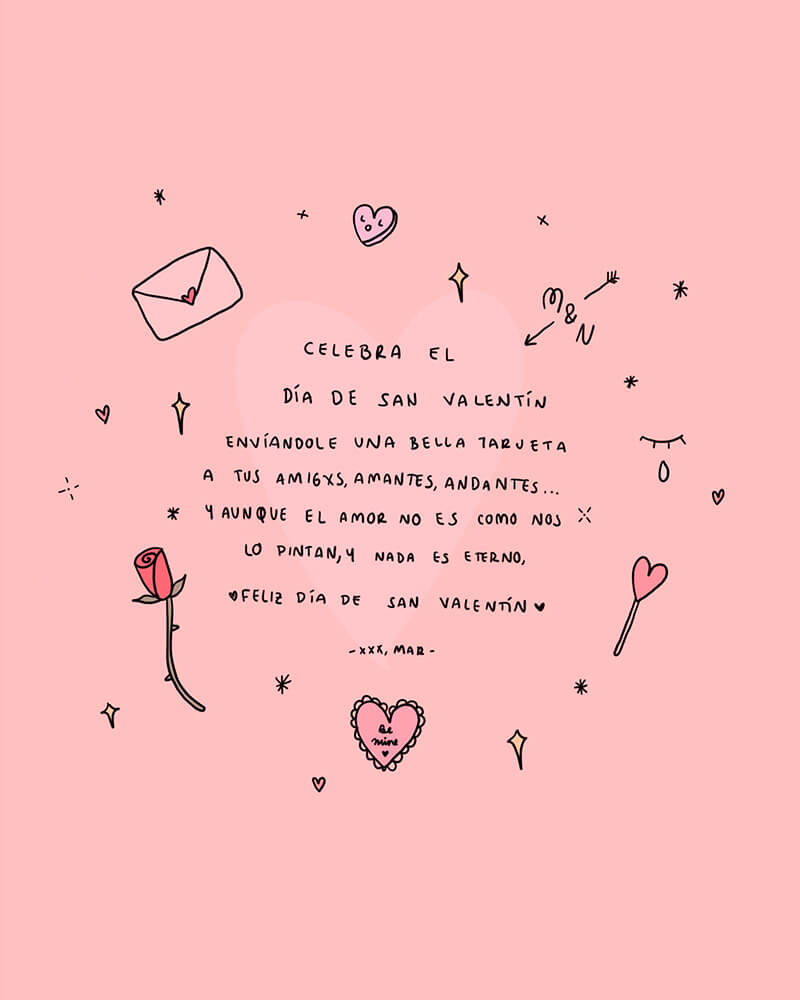 M
&
N
CELEBRA EL
DÍA DE SAN VALENTÍN
ENVÍANDOLE UNA BELLA TARJETA
A TUS AMIGXS, AMANTES, ANDANTES...
Y AUNQUE EL AMOR NO ES COMO NOS
LO PINTAN, Y NADA ES ETERNO,
♥FELIZ DÍA DE SAN VALENTÍN♥
-XXX, MAR-
Be
mine